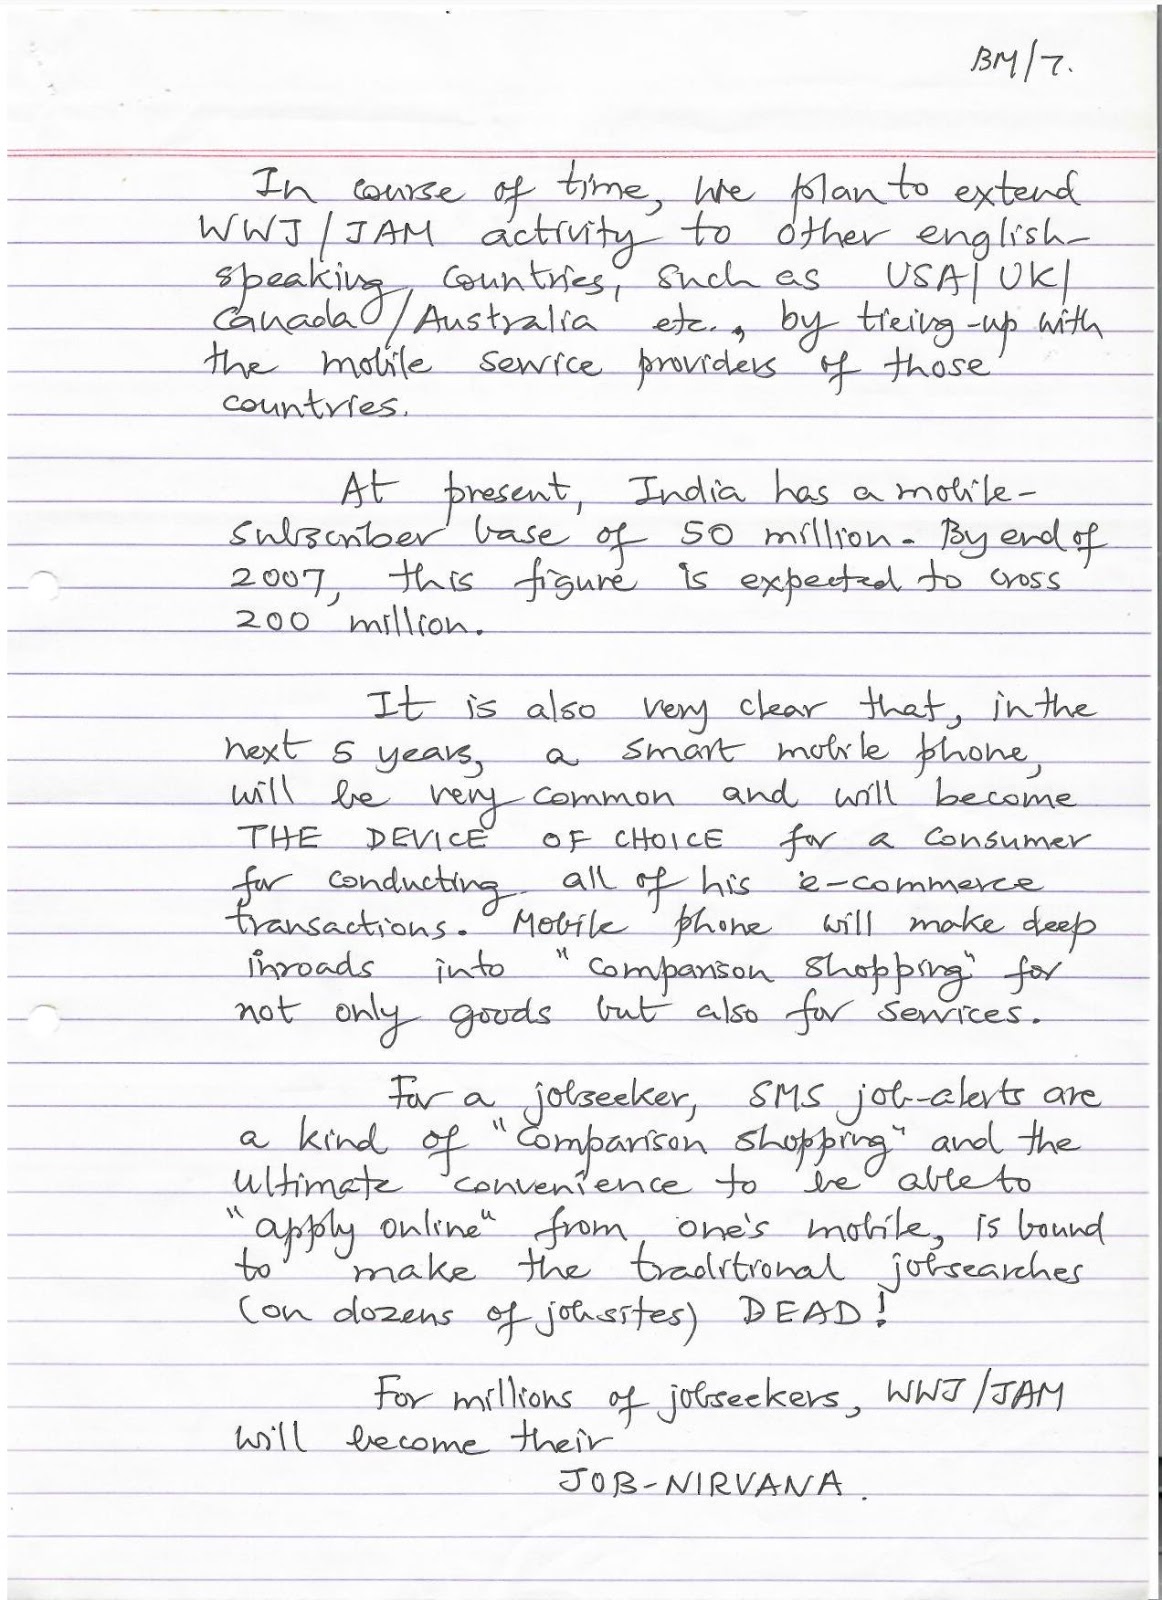 BM/7.
In course of time, we plan to extend
WWJ/JAM activity to other english-
speaking countries, such as USA/UK/
Canada/Australia etc., by tieing-up with
the mobile service providers of those
countries.
At present, India has a mobile-
subscriber base of 50 million. By end of
2007, this figure is expected to cross
200 million.
It is also very clear that, in the
next 5 years, a smart mobile phone,
will be very common and will become
THE DEVICE OF CHOICE for a consumer
for conducting all of his e-commerce
transactions. Mobile phone will make deep
inroads into "comparison shopping" for
not only goods but also for services.
For a jobseeker, SMS job-alerts are
a kind of "comparison shopping" and the
ultimate convenience to be able to
"apply online" from one's mobile, is bound
to make the traditional jobsearches
(on dozens of jobsites) DEAD!
For millions of jobseekers, WWJ/JAM
will become their
JOB-NIRVANA.